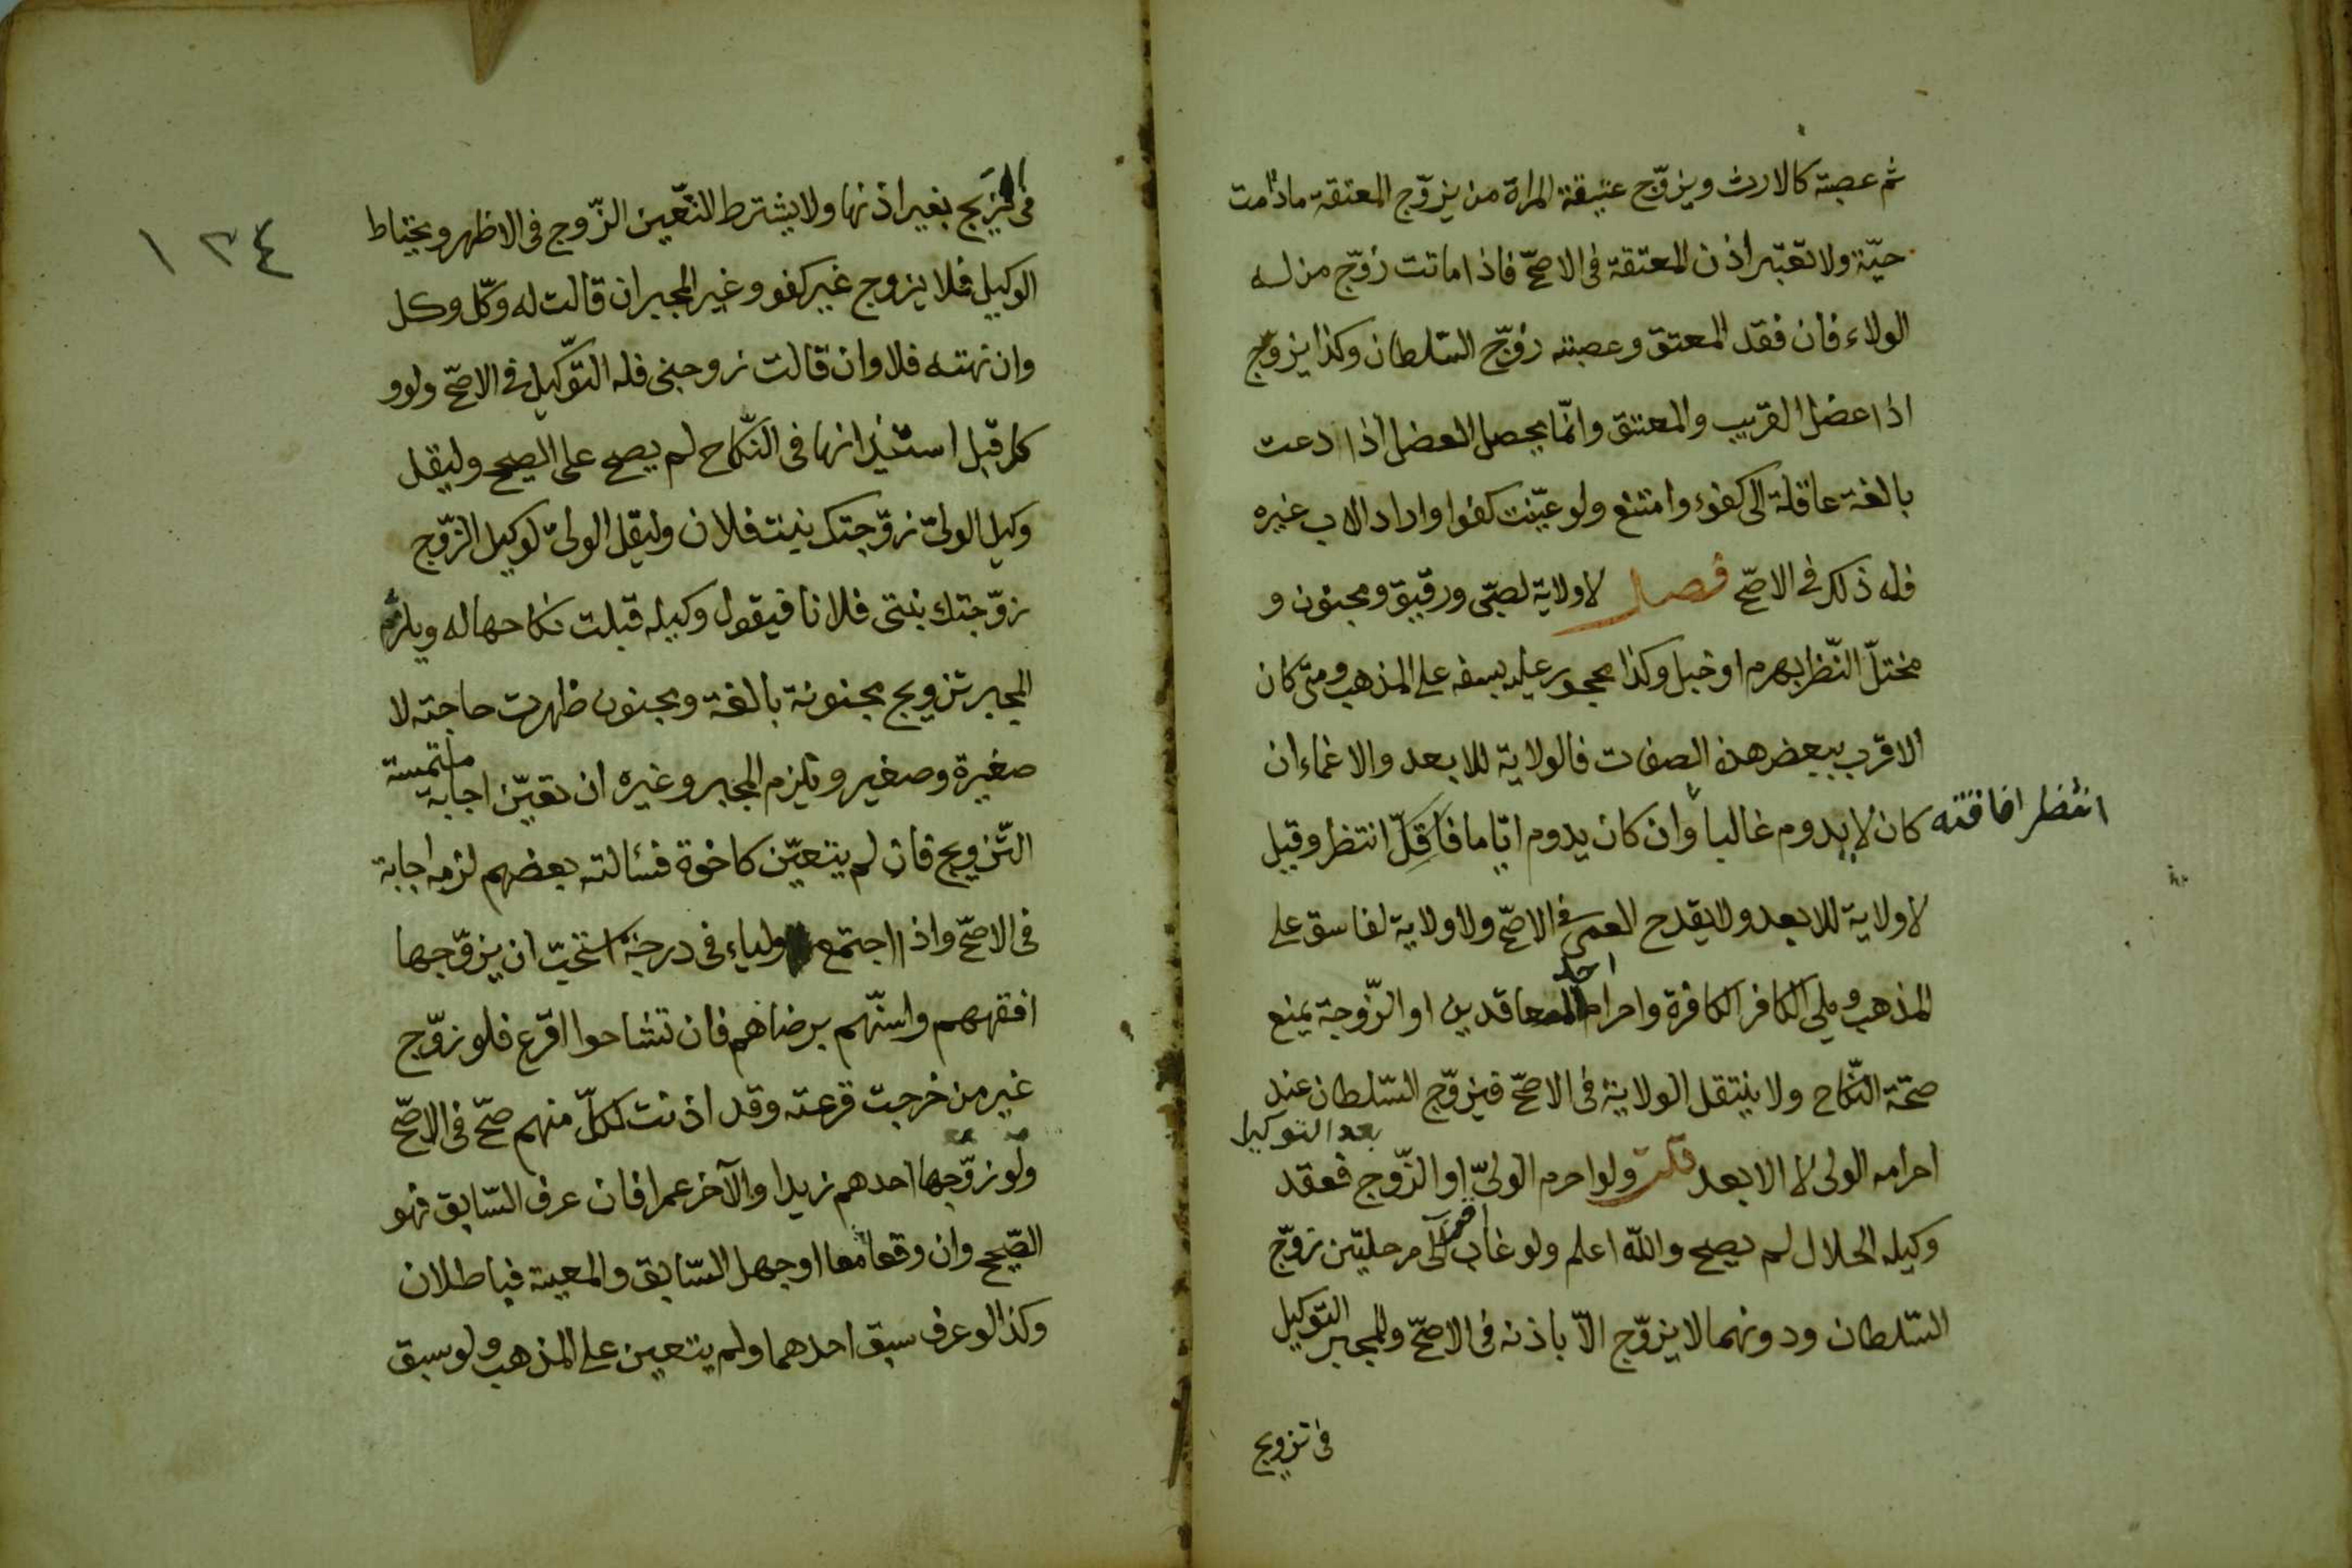 ثم عصبته كالارث ويزوّج عتيقة المراة من يزوّج المعتقة مادامت
حيّة ولا تعتبر اذن المعتقة فى الاصحّ فاذا ماتت زوّج من له
الولاء فان فقد المعتق وعصبته زوّج السّلطان وكذا يزوّج
اذا عضل القريب والمعتق وانّما يحصل العضل اذا دعت
بالغة عاقلة الى كفوء وامتنع ولو عيّنت كفوا واراد الاب غيره
فله ذلك فى الاصحّ فصل لا ولاية لصبّى ورقيق ومجنون و
مختلّ النّظر بهرم او خبل وكذا محجور عليه بسفه على المذهب ومتى كان
الاقرب ببعض هذه الصفات فالولاية للابعد والاغماء ان
كان لا يدوم غالباً وان كان يدوم ايّاما فاقلّ انتظر وقيل
انتظر افاقته
لا ولاية للابعد ولا يقدح العمى فى الاصحّ ولا ولاية لفاسق على
المذهب ويلى الكافر الكافرة واحرام احد العاقدين او الزّوجة يمنع
صحّة النّكاح ولا ينتقل الولاية فى الاصحّ فيزوّج السّلطان عند
احرامه الولى لا الابعد قلت ولو احرم الولىّ او الزّوج فعقد
بعد التوكيل
وكيله الحلال لم يصح والله اعلم ولو غاب اقرب الى مرحلتين زوّج
السّلطان ودونهما لا يزوّج الّا باذنه فى الاصحّ وللمجبر التوكيل
فى تزويج
١٣٤
فى التزيج بغير اذنها ولا يشترط التّعين الزّوج فى الاظهر ويحتاط
الوكيل فلا يزوج غير كفو وغير المجبر ان قالت له وكّل وكل
وان نهته فلا وان قالت زوجنى فله التّوكيل فى الاصحّ ولو و
كل قبل استئذانها فى النّكاح لم يصح على الصيح وليقل
وكيل الولىّ زوّجتك بنت فلان وليقل الولىّ لوكيل الزّوج
زوّجتك بنتى فلانا فيقول وكيله قبلت نكاحها له ويلزم
المجبر تزويج مجنونة بالغة ومجنون ظهرت حاجته لا
صغيرة وصغير ويلزم المجبر وغيره ان تعيّن اجابة ملتمسة
التّزويج فان لم يتعيّن كاخوة فسئالته بعضهم لزمه اجابة
فى الاصحّ واذا اجتمع اولياء فى درجة استحبّ ان يزوّجها
افقههم واسنّهم برضاهم فان تشاحوا اقرع فلو زوّج
غير من خرجت قرعته وقد اذنت لكلّ منهم صحّ فى الاصحّ
ولو زوّجها احدهم زيدا والآخر عمرا فان عرف السّابق فهو
الصّيح وان وقعا معا او جهل السّابق والمعية فباطلان
وكذا لو عرف سبق احدهما ولم يتعين على المذهب ولو سبق